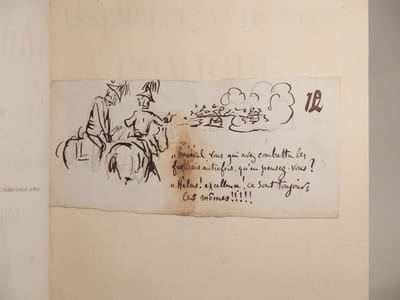 12
„ Général, vous qui avez combattu les
français autrefois, qu'en pensez-vous?
„ Hélas! excellence, ce sont toujours
les mêmes!!!!!